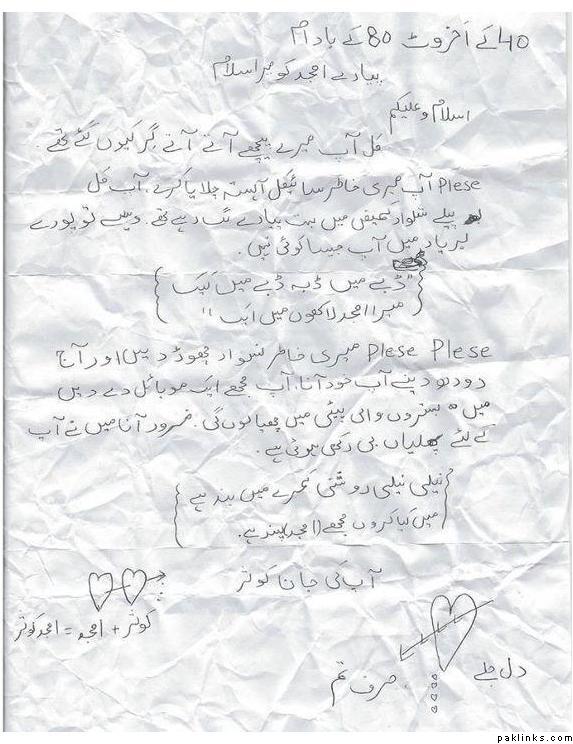 40 کے اخروٹ 80 کے بادام
پیارے امجد کو میرا سلام
اسلام وعلیکم
کل آپ میرے پیچھے آتے آتے گر کیوں گئے تھے.
Plese آپ میری خاطر سائیکل آہستہ چلایا کرے، آپ کل
پیلے شلوار کمیض میں بہت پیارے لگ رہے تھے. ویسے تو پورے
میں آپ جیسا کوئی نہیں.
"ڈبے میں ڈبہ ڈبے میں کیک
میرا امجد لاکھوں میں ایک"
Plese Plese میری خاطر نسوار چھوڑ دیں اور آج
دودہ دینے آپ خود آنا. آپ مجھے ایک موبائل دے دیں
میں بستروں والی پیٹی میں چھپا لوں گی. ضرور آنا میں نے آپ
کے لئے پھلیاں بی رکھی ہوئی ہے.
نیلی نیلی روشنی کمرے میں بند ہے
میں کیا کروں مجھے (امجد) پسند ہے.
آپ کی جان کوثر
کوثر + امجد = امجد کوثر
دل جلے
صرف تم
paklinks.com